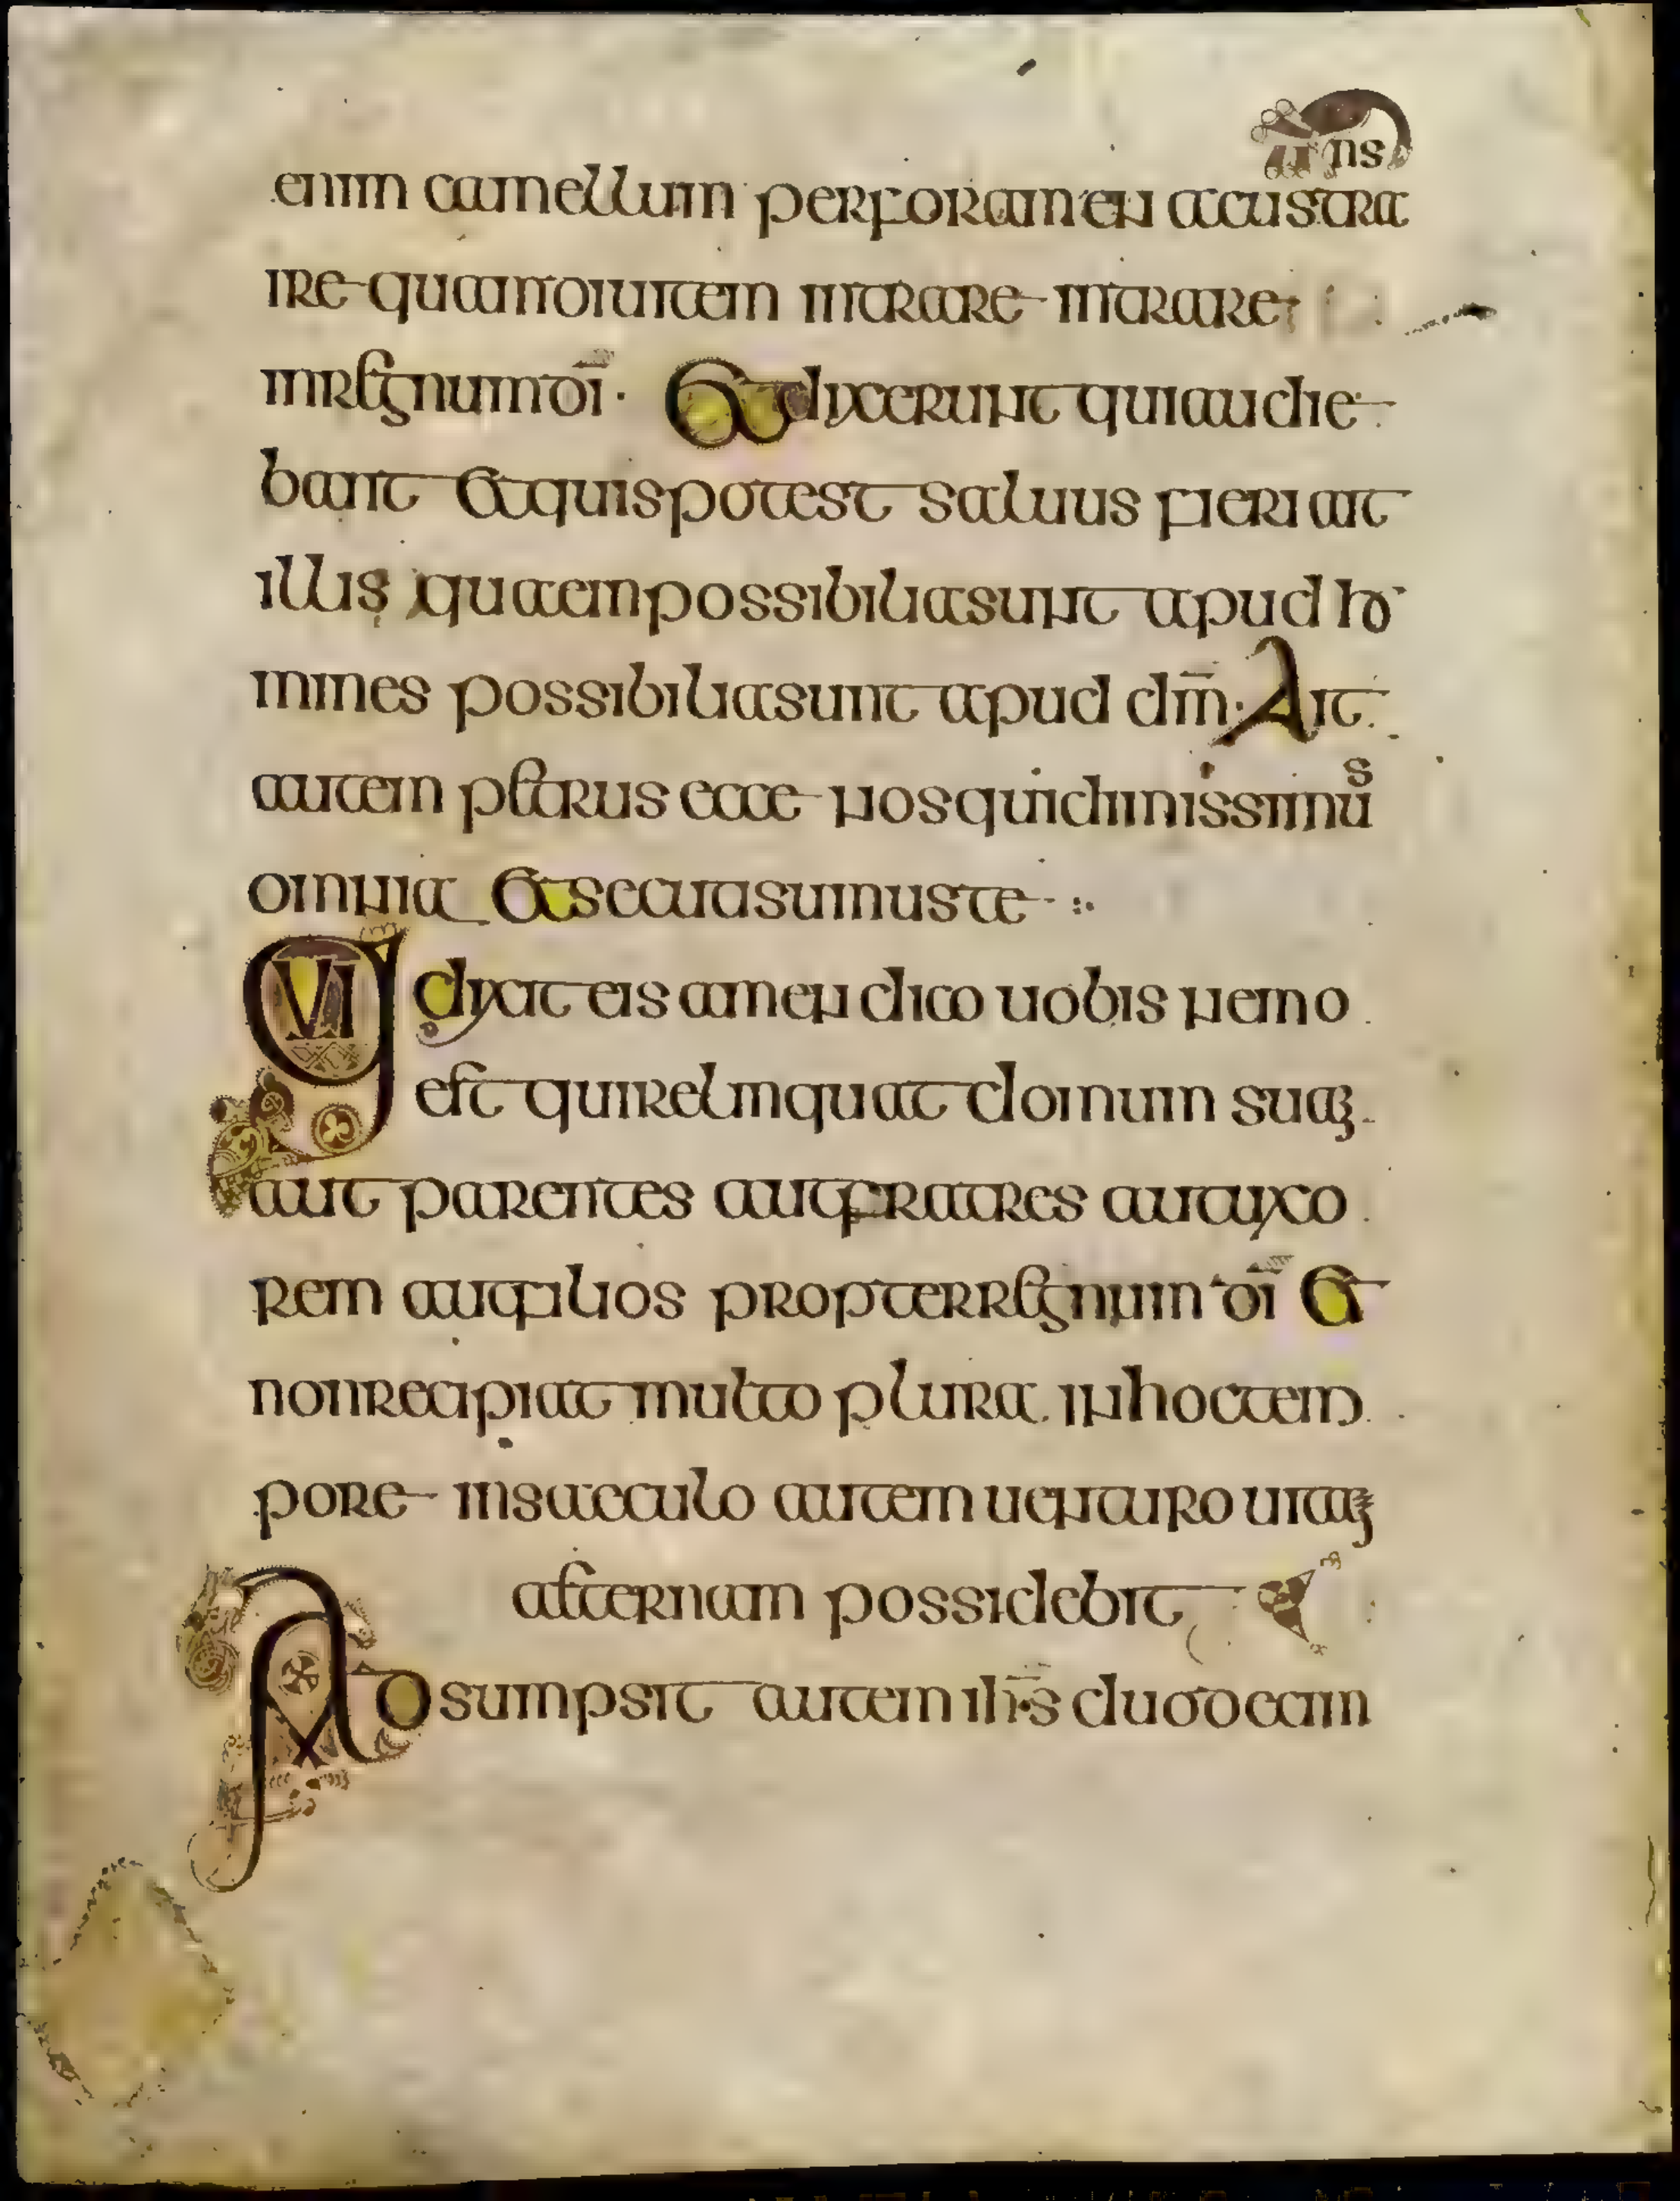 ns
enim camellum per foramen acus tra
ire quam diuitem intrare intrare
in regnum dī· Et dixerunt qui audie
bant et quis potest saluus fieri ait
illis quae inpossibilia sunt apud ho
mines possibilia sunt apud dm̄· Ait
autem petrus ecce nos qui dimissimus
omnia et secuti sumus te :·
Qui dixit eis amen dico uobis nemo
est qui relinquat domum suam
aut parentes aut fratres aut uxo
rem aut filios propter regnum dī et
non recipiat multo plura in hoc tem
pore in saeculo autem uenturo uitam
aeternam possidebit
Adsumpsit autem ih̄s duodecim